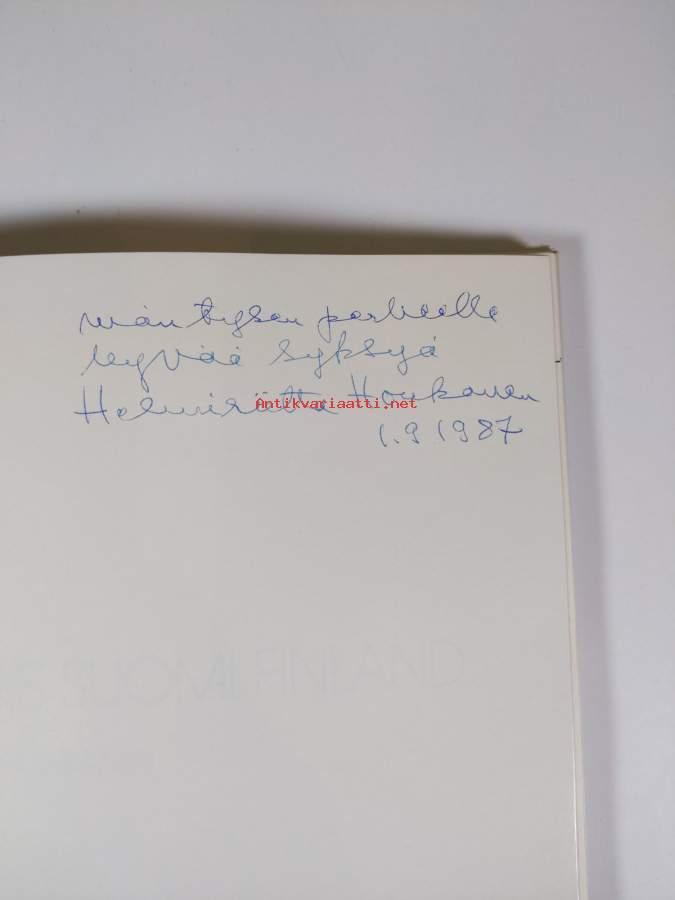 Mäntysen perheelle
hyvää syksyä
Helmiriitta Honkanen
Antikvariaatti.net
1.9 1987
SUOMI FINLAND